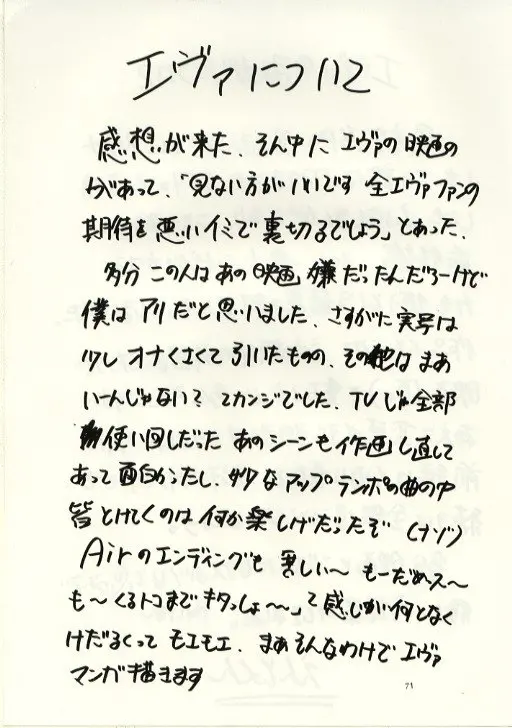 エヴァについて
感想が来た、そん中に エヴァの映画の
分があって、「見ない方がいいです 全エヴァファンの
期待を悪いイミで裏切るでしょう」とあった、
多分 この人はあの映画 嫌だったんだろーけど
僕は アリだと思いました、さすがに実写は
少し オナくさくて 引いたものの、その他は まあ
いーんじゃない？てカンジでした、TVじゃ全部
使い回しだった あのシーンも作画し直して
あって 面白かったし、妙なアップテンポの曲の中
皆とけてくのは 何か楽しげだったぞ（ナゾ）
Airのエンディングも 苦しい〜 もーだめ・ス〜
も〜くるトコまでキタっしょ〜〜」て感じが何となく
けだるくって モエモエ、まあそんなわけで エヴァ
マンガ描きます
71